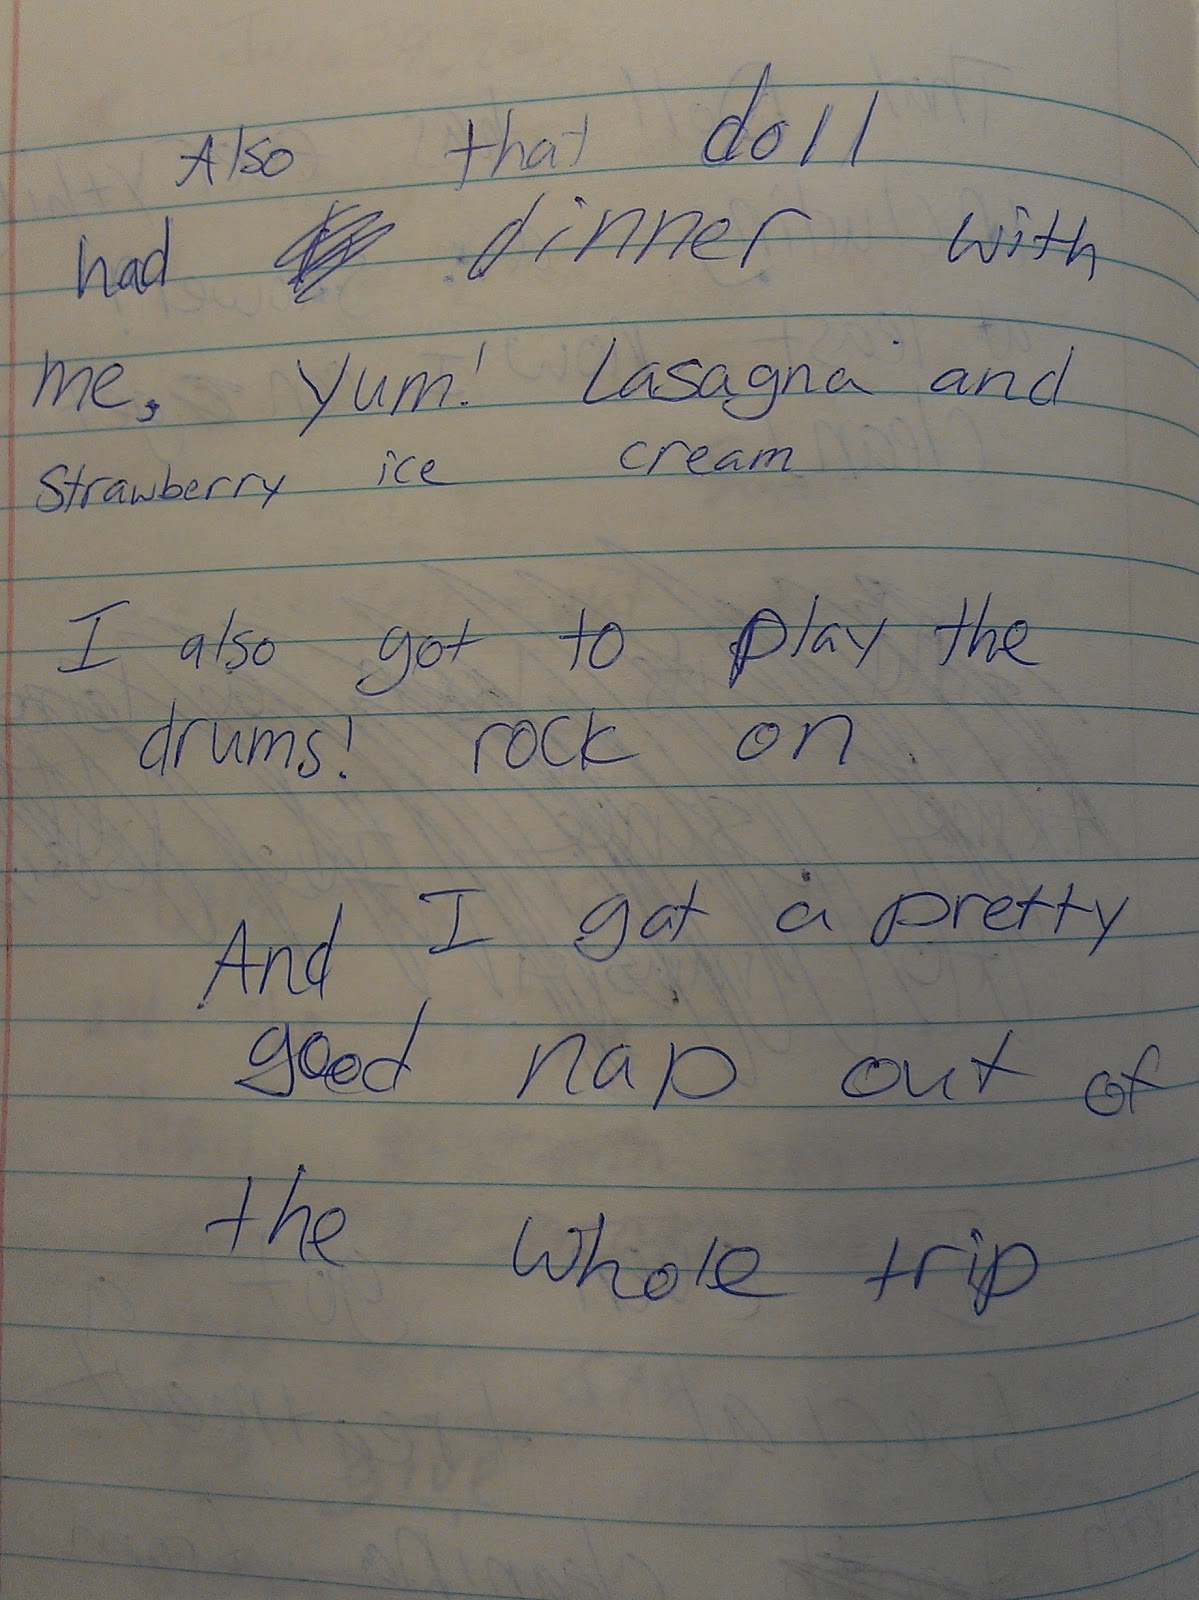 Also that doll
had dinner with
me, Yum! Lasagna and
Strawberry ice cream
I also got to play the
drums! rock on
And I got a pretty
good nap out of
the whole trip